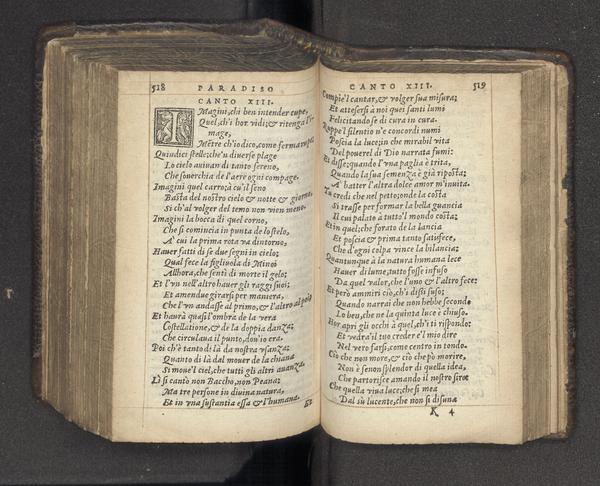 518 PARADISO
CANTO XIII.
IMagini, chi ben intender cupe,
Quel, ch'i hor vidi; & ritenga l'i-
mage,
Mētre ch'io dico, come ferma rupe;
Quindici stelle; che'n diuerse plage
Lo cielo auiuan di tanto sereno,
Che souerchia de l'aere ogni compage,
Imagini quel carro; à cu'il seno
Basta del nostro cielo & notte & giorno,
Si ch'al volger del temo non vien meno.
Imagini la bocca di quel corno,
Che si comincia in punta de lo stelo,
A' cui la prima rota va dintorno;
Hauer fatti di se due segni in cielo;
Qual fece la figliuola di Minoi
Allhora, che sentì di morte il gelo;
Et l'vn nell'altro hauer gli raggi suoi;
Et amendue girarsi per maniera,
Che l'vn andasse al primo, & l'altro al poi
Et haurà quasi l'ombra de la vera
Costellatione, & de la doppia danza;
Che circulaua il punto, dou'io era.
Poi ch'è tanto di là da nostra vsanza;
Quanto di là dal mouer de la chiana
Si moue'l ciel, che tutti gli altri auanza.
Li si cantò non Baccho, non Peana;
Ma tre persone in diuina natura,
Et in vna sustantia essa & l'humana.
CANTO XIII. 519
Compie'l cantar, & volger sua misura;
Et attesersi à noi quei santi lumi
Felicitando se di cura in cura.
Ruppe'l silentio n'e concordi numi
Poscia la luce; in che mirabil vita
Del pouerel di Dio narrata fumi:
Et disse; quando l'vna paglia è trita,
Quando la sua semenza è già riposta;
A' batter l'altra dolce amor m'inuita.
Tu credi che nel petto; onde la costa
Si trasse per formar la bella guancia
Il cui palato à tutto'l mondo costa;
Et in quel; che forato de la lancia
Et poscia & prima tanto satisfece,
Che d'ogni colpa vince la bilancia;
Quantunque à la natura humana lece
Hauer di lume, tutto fosse infuso
Da quel valor, che l'uno & l'altro fece:
Et però ammiri ciò, ch'i dissi suso;
Quando narrai che non hebbe secondo
Lo ben, che ne la quinta luce è chiuso.
Hor apri gli occhi à quel, ch'i ti rispondo:
Et vedra'il tuo creder e'l mio dire
Nel vero farsi, come centro in tondo.
Ciò che non more, & ciò che pò morire,
Non è se non splendor di quella idea,
Che partorisce amando il nostro sire:
Che quella viua luce; che si mea
Dal sù lucente, che non si disuna
K 4